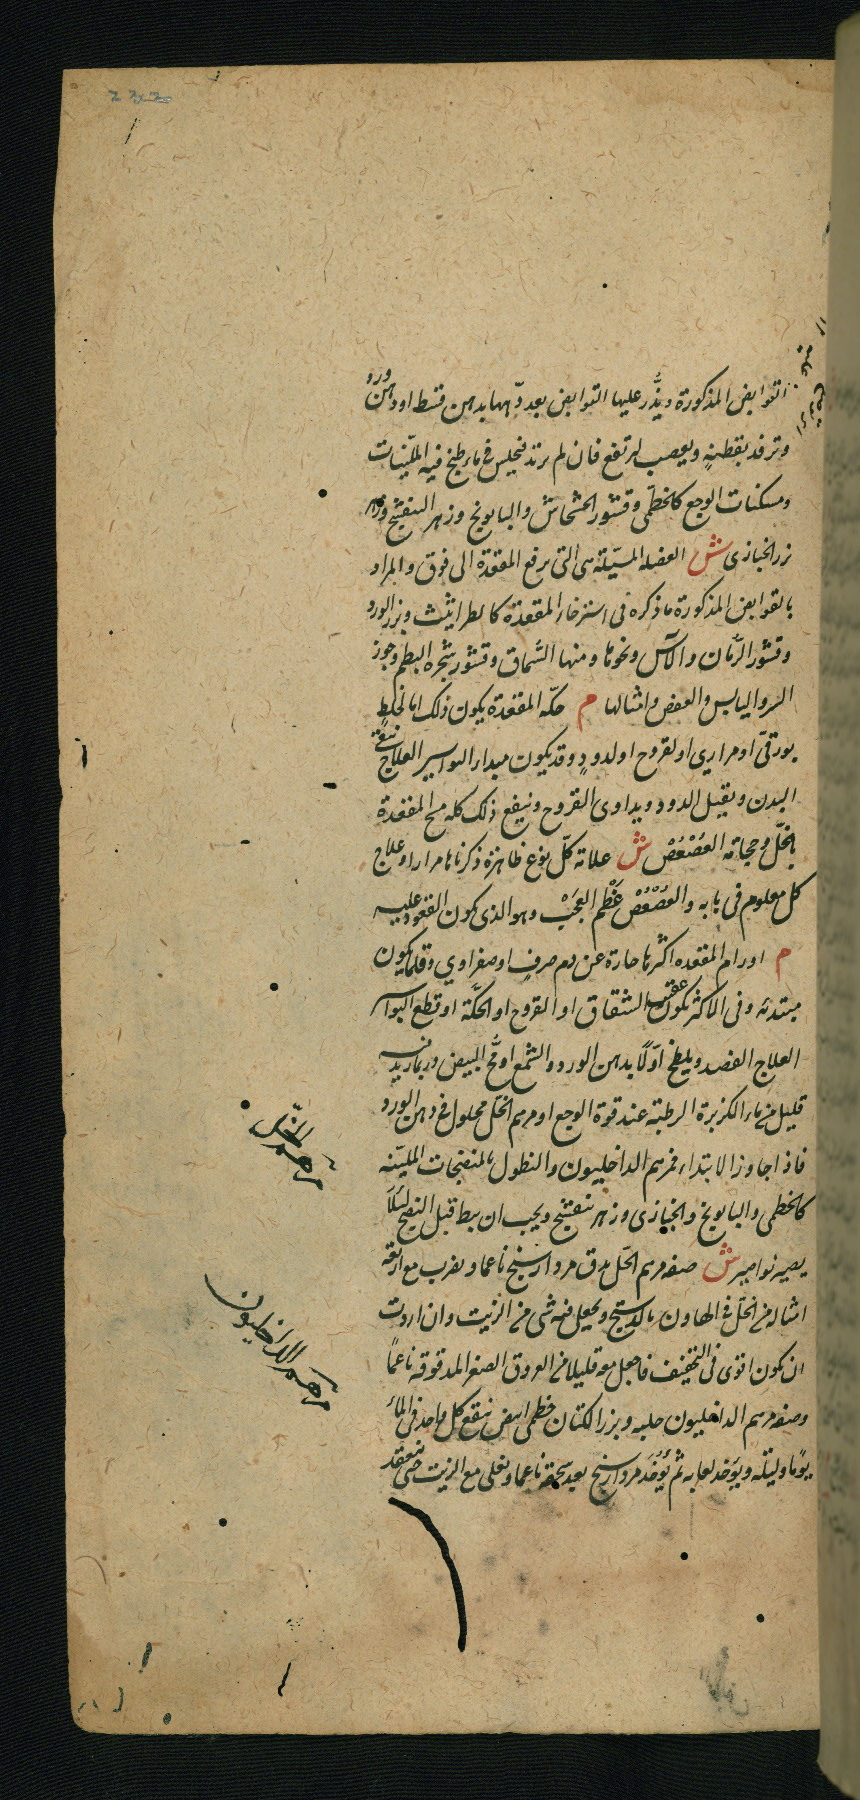 القوابض المذكورة ويذر عليها القوابض بعد دهنها بدهن قسط او دهن ورد
وترفد بقطنة ويعصب لترتفع فان لم ترتد فيجلس في ماء طبخ فيه الملينات
ومسكنات الوجع كالخطمى وقشور الخشخاش والبابونج وزهر البنفسج
بزر الخبازى ش العضلة المسيلة هى التى ترفع المقعدة الى فوق والمراد
بالقوابض المذكورة ما ذكره فى استرخاء المقعدة كالطراثيث وبزر الورد
وقشور الرمان والآس ونحوها ومنها السماق وقشور شجرة البطم وجوز
السرو اليابس والعفص وامثالها م حكة المقعدة يكون ذلك اما لخلط
بورقىّ او مرارى او لقروح او لدود وقد يكون مبداء البواسير العلاج تنقية
البدن ويقتل الدود ويداوى القروح وينفع ذلك كله مسح المقعدة
بالخلّ وحجامة العُصْعُصْ ش علامة كلّ نوع ظاهرة ذكرناها مرارا وعلاج
كل معلوم فى بابه والعُصْعُصْ عَظْم العَجَبْ وهو الذى يكون القعود عليه
م اورام المقعده اكثرها حارة عن دم صرف او صفراوي وقلما يكون
مبتدئه وفى الاكثر يكون عقيب الشقاق او القروح او الحكّة او قطع البواسير
العلاج الفصد ويلطخ اوّلا بدهن الورد والشمع او مُحّ البيض وربما زيد فيه
قليل من ماء الكزبرة الرطبة عند قوة الوجع او مرهم الخلّ محلول فى دهن الورد
فاذا جاوز الابتداء فمرهم الداخليون والنطول بالمنضجات الملينه
كالخطمى والبابونج والخبازى وزهر بنفسج ويجب ان يبط قبل النضج لئلا
يصير نواصير ش صفه مرهم الخل يدق مرداسنج ناعما ويضرب مع اربعه
امثاله من الخلّ فى الهاون بالدستج ويجعل فيه شى من الزيت وان اردت
ان يكون اقوى فى التجفيف فاجعل معه قليلا من العروق الصفر المدقوقه ناعماً
وصفه مرهم الداخليون حلبه وبزر الكتان خطمى ابيض ينقع كل واحد فى الماء
يوما وليلة ويوخذ لعابه ثم يُوخَذ مرداسنج بعد سحقه ناعما ويغلى مع الزيت حتى ينعقد
مرهم الخل
مرهم الداخليون